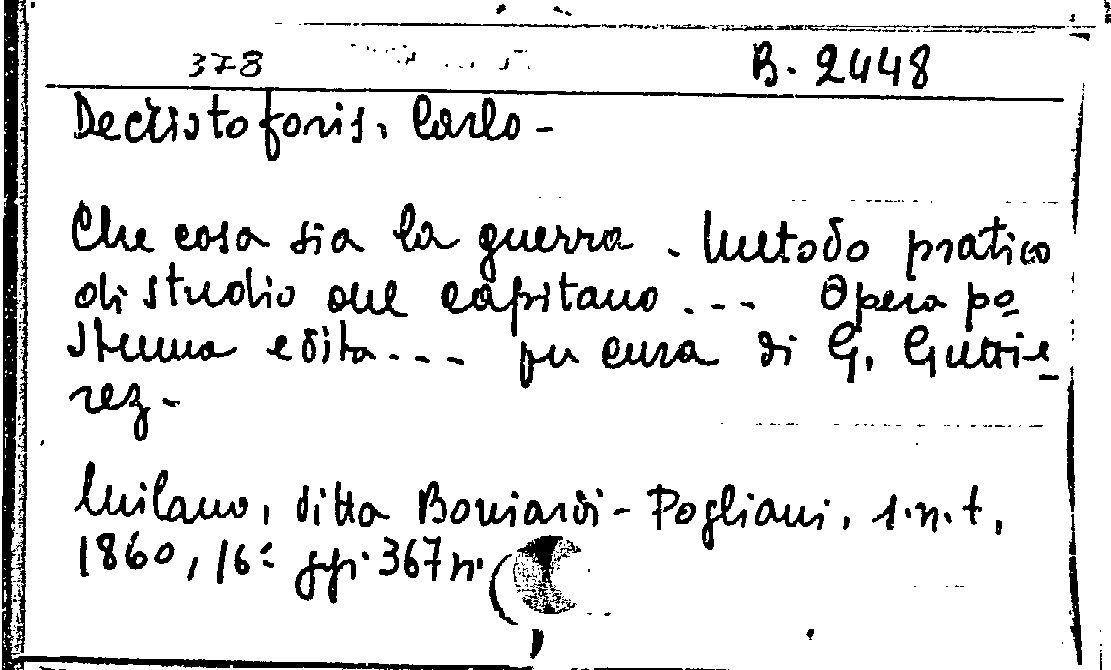 378 B. 2448
Decristoforis, Carlo -
Che cosa sia la guerra. Metodo pratico
di studio del capitano ... Opera po=
stuma edita ... per cura di G. Guttie=
rez -
Milano, ditta Boniardi - Pogliani, s.n.t,
1860, 16° pp. 367 n.